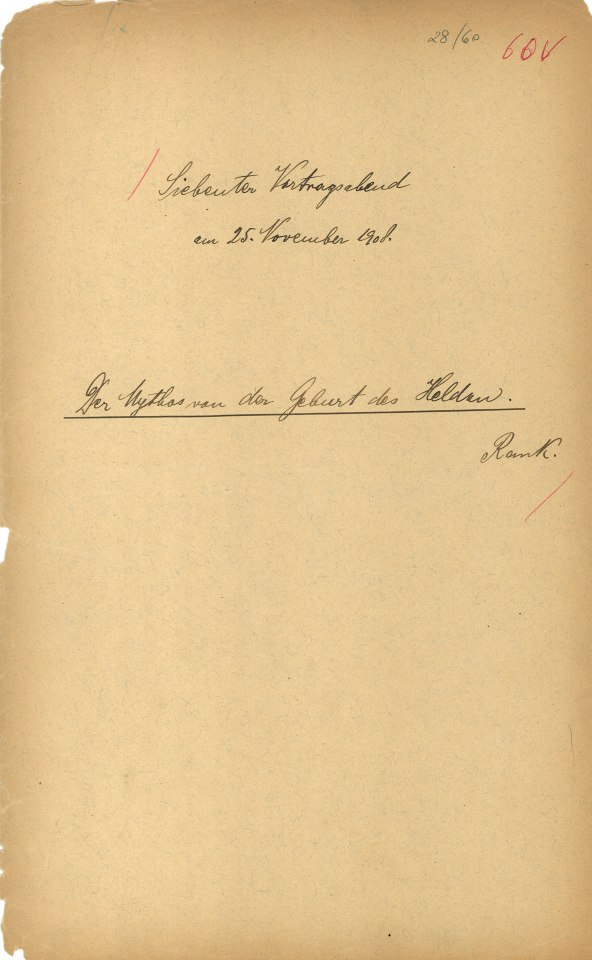 28/60
60V
Siebenter Vortragsabend
am 25. November 1908.
Der Mythos von der Geburt des Helden.
Rank.